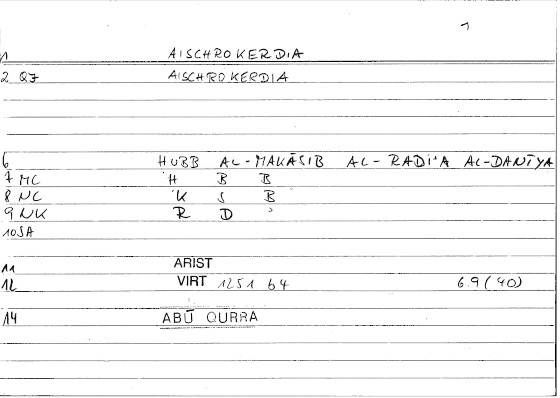 1 AISCHROKERDIA
2 QZ AISCHROKERDIA
6 HUBB AL-MAKĀSIB AL-RADĪ'A AL-DANĪYA
7 MC H B B
8 NC K S B
9 NK R D '
10 SA
11 ARIST
12 VIRT 1251 b4 6.9 (40)
14 ABŪ QURRA